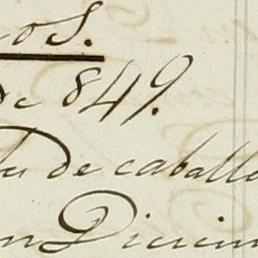 os.
de 849.
tu de caballe
n Diciem